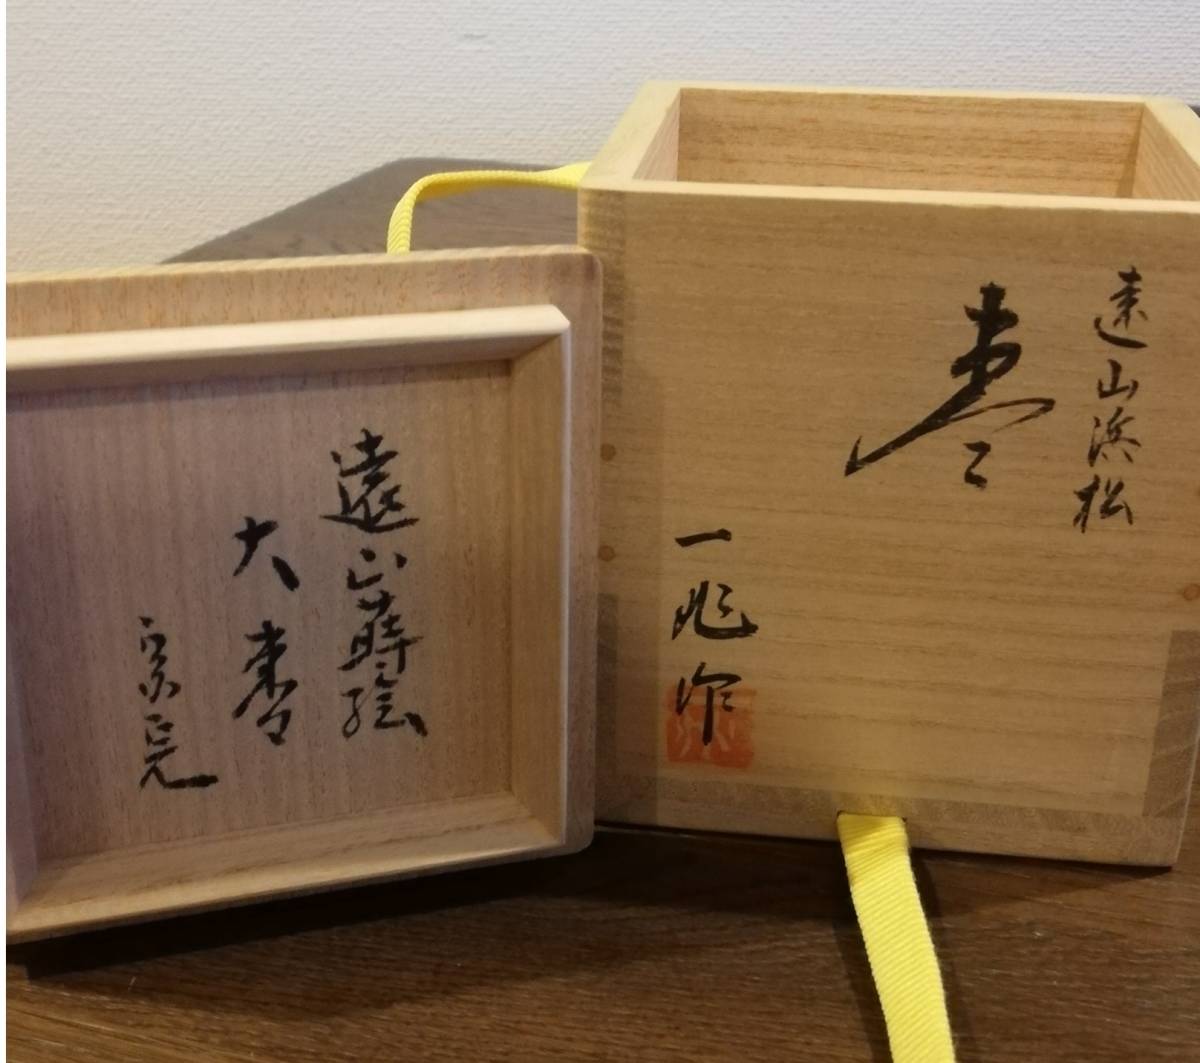 遠山蒔絵
大棗
宗完
遠山浜松
棗
一兆作